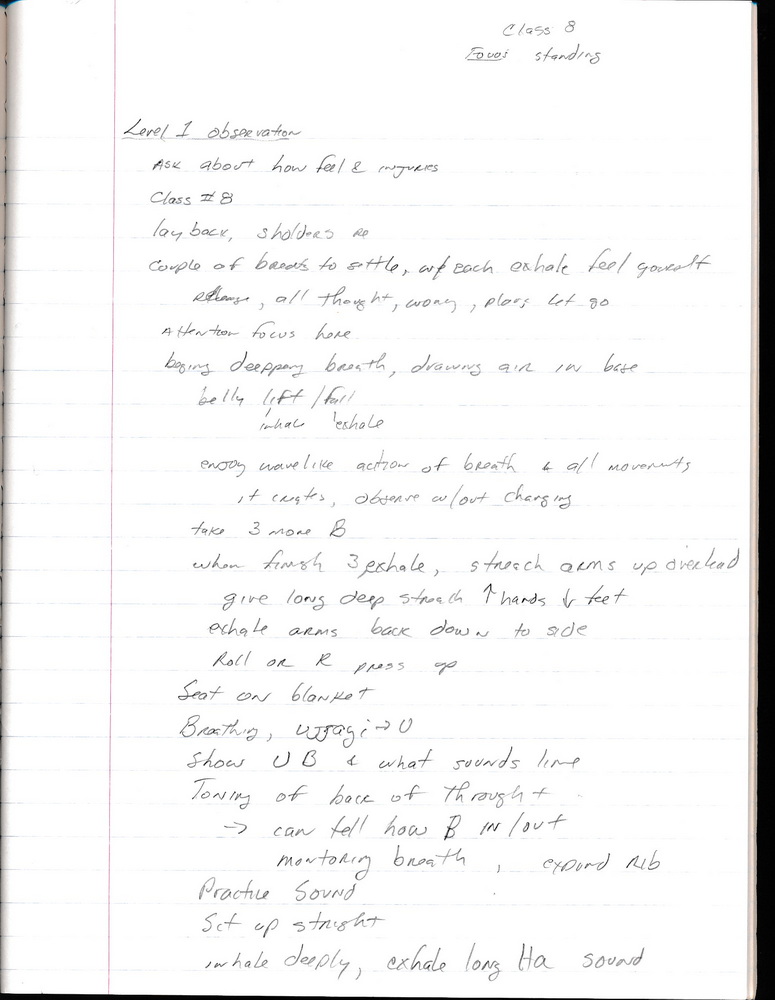 Class 8
Focus standing
Level 1 observation
Ask about how feel & injuries
Class # 8
lay back, sholders re
Couple of breats to settle, w/ each exhale feel yourself
, all thought, worry, plans let go
Attention focus here
beging deeppeny breath, drawing air in base
belly lift / fall
inhale exhale
enjoy wavelike action of breath & all movements
it creates, observe w/out changing
take 3 more B
when finish 3 exhale, streach arms up overhead
give long deep streach ↑ hands ↓ feet
exhale arms back down to side
Roll on R press up
Seat on blanket
Breathing, ujjayi → U
Show U B & what sounds like
Toning of back of throught
→ can tell how B in/out
montoring breath, expand rib
Practice Sound
Set up stright
inhale deeply, exhale long Ha sound